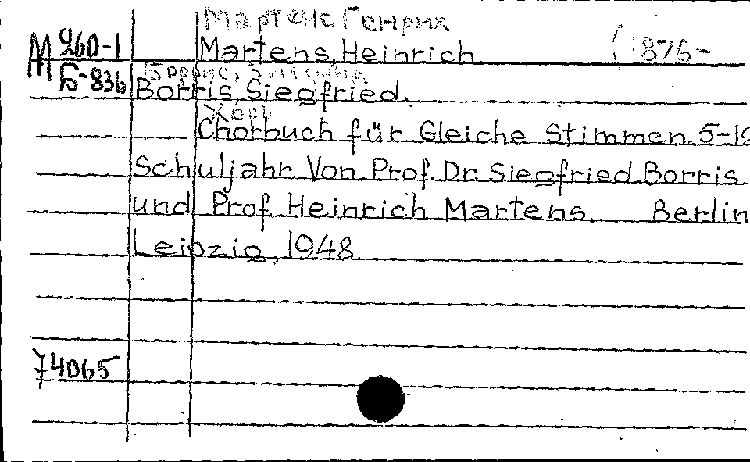 Мартенс Генрих
М 960-1 Martens, Heinrich (1876-
М Б-836 Боррис, Зигфрид
Borris, Siegfried.
Хор
Chorbuch für Gleiche Stimmen 5-10
Schuljahr Von Prof. Dr. Siegfried Borris
und Prof. Heinrich Martens. Berlin
Leipzig, 1948
74065